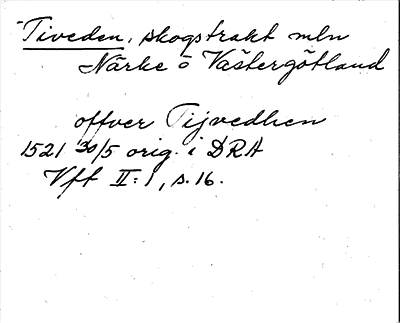 Tiveden, skogstrakt mln
Närke o Västergötland
offver Tijvedhen
1521 30/5 orig. i DRA
Vff II:1, s. 16.